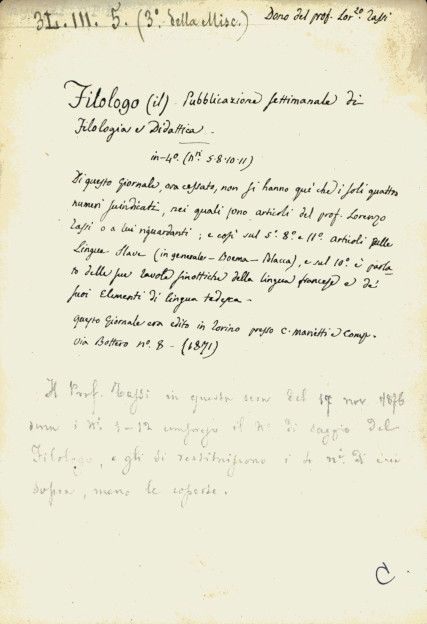 3L. III. 5. (3° della Misc.)
Dono del prof. Lor.zo Tassi
Filologo (il) - Pubblicazione settimanale di
Filologia e Didattica -
in-4°. (ni. 5. 8. 10. 11)
Di questo Giornale, ora cessato, non si hanno quì che i soli quattro
numeri suindicati, nei quali sono articoli del prof. Lorenzo
Tassi o a lui riguardanti; e così sul 5°. 8°. e 11°. articoli sulle
Lingue Slave (in generale - Boema - Polacca), e sul 10°. è parla
to delle sue tavole sinottiche della lingua francese e de'
suoi Elementi di lingua tedesca -
questo Giornale era edito in Torino presso C. Marietti e Comp.
via Bottero n°. 8 - (1871)
Il Prof. Tassi in questa sera del 17 nov 1876
i Ni. 1-12 compreso il N° di saggio del
Filologo, e gli si restituiscono i 4 ni. di cui
sopra, meno le coperte.
C.